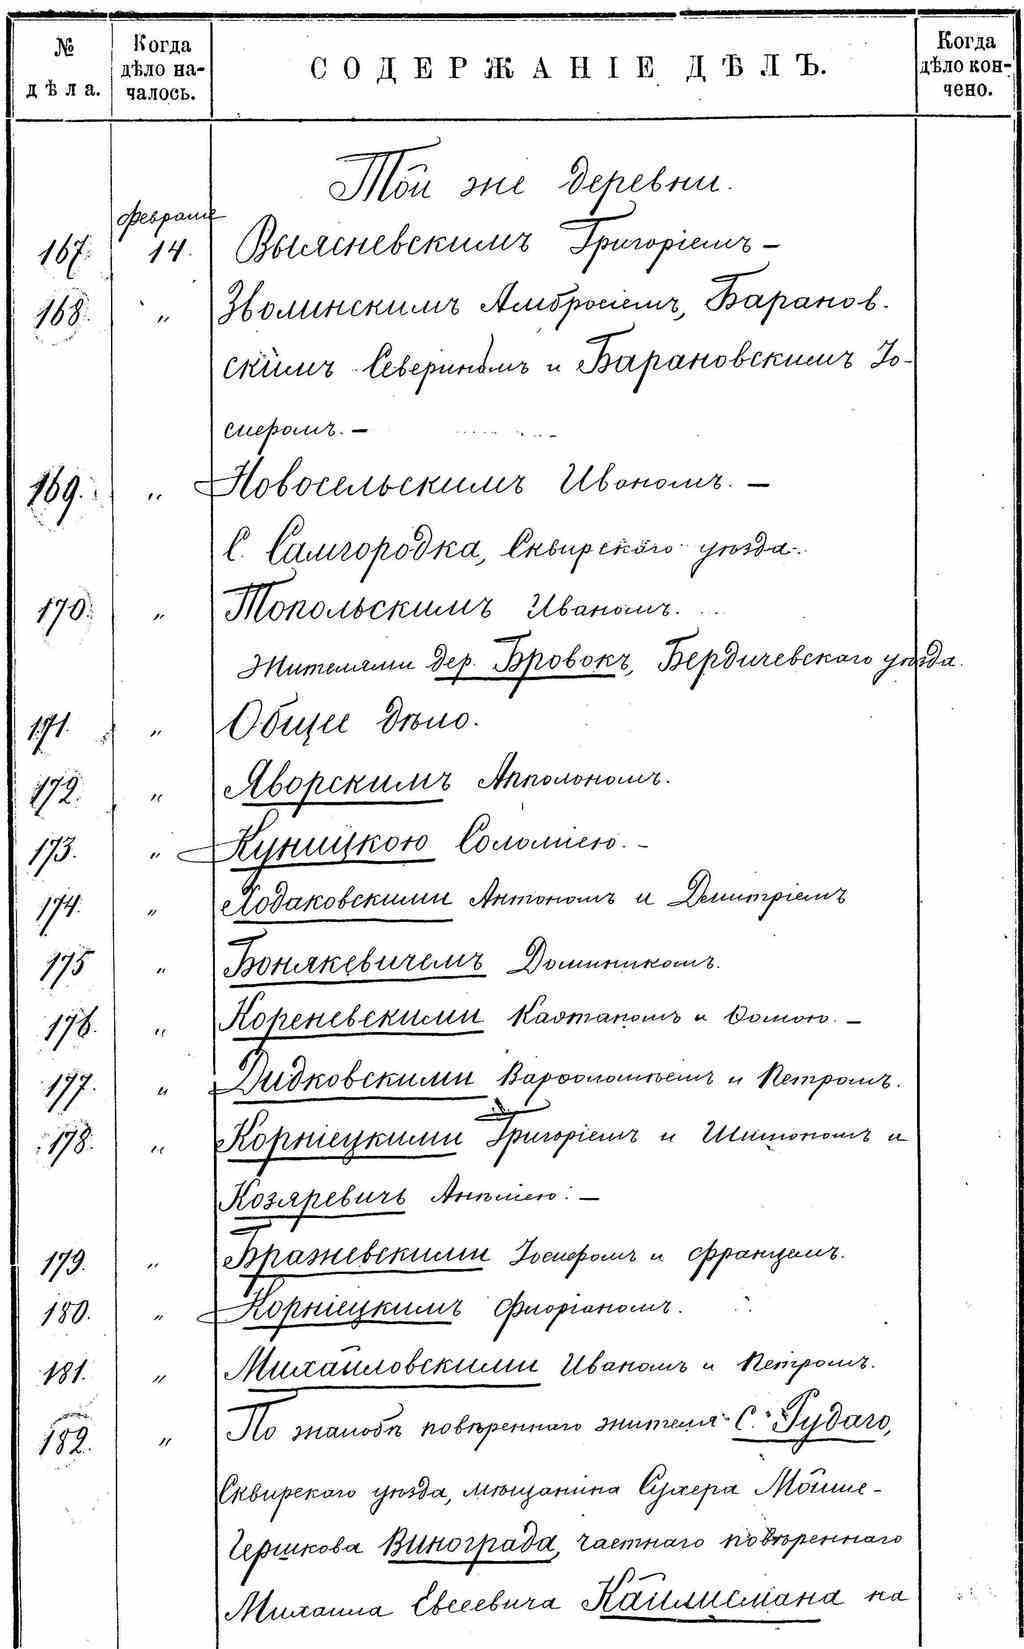 № дѣла.
Когда дѣло на-чалось.
СОДЕРЖАНІЕ ДѢЛЪ.
Когда дѣло кон-чено.
Той же деревни.
167. Февраля 14. Выясневскимъ Григоріемъ –
168. " Зволинскимъ Амбросіемъ, Баранов-
скимъ Севериномъ и Барановскимъ Іо-
сифомъ. –
169. " Новосельскимъ Иваномъ. –
С. Самгородка, Сквирскаго уѣзда.
170. " Топольскимъ Иваномъ.
Жителями дер. Бровокъ, Бердичевскаго уѣзда.
171. " Общее дѣло.
172. " Яворскимъ Апполономъ.
173. " Куницкою Соломіею. –
174. " Ходаковскими Антономъ и Дмитріемъ
175 " Бонякевичемъ Доминикомъ.
176. " Кореневскими Каэтаномъ и Ѳомою. –
177. " Дидковскими Варѳоломѣемъ и Петромъ.
178. " Корніецкими Григоріемъ и Шимономъ и
Козяревичъ Анѣліею. –
179. " Бражевскими Іосифомъ и Францемъ.
180. " Корніецкимъ Флоріаномъ.
181. " Михайловскими Иваномъ и Петромъ.
182. " По жалобѣ повѣреннаго жителя С. Рудаго,
Сквирскаго уѣзда, мѣщанина Сухера Мойше-
Гершкова Винограда, частнаго повѣреннаго
Михаила Евсеевича Кайлисмана на